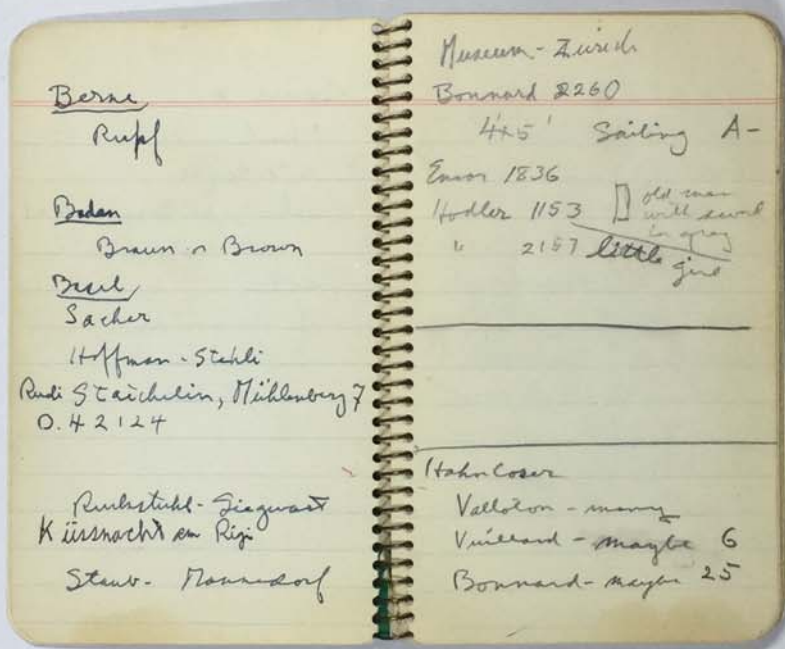 Berne
Rupf
Baden
Braun or Brown
Basel
Sacher
Hoffman-Stehli
Rudi Staichelin, Mühlenberg 7
0.42124
Ruckstuhl-Siegwart
Küssnacht am Rigi
Staub- Mannedorf
Museum-Zurich
Bonnard 2260
4x5' Sailing A-
Ensor 1836
Hodler 1153 old man
with in gray
" 2157 little girl
Hahnloser
Valloton-many
Vuillard-maybe 6
Bonnard-maybe 25